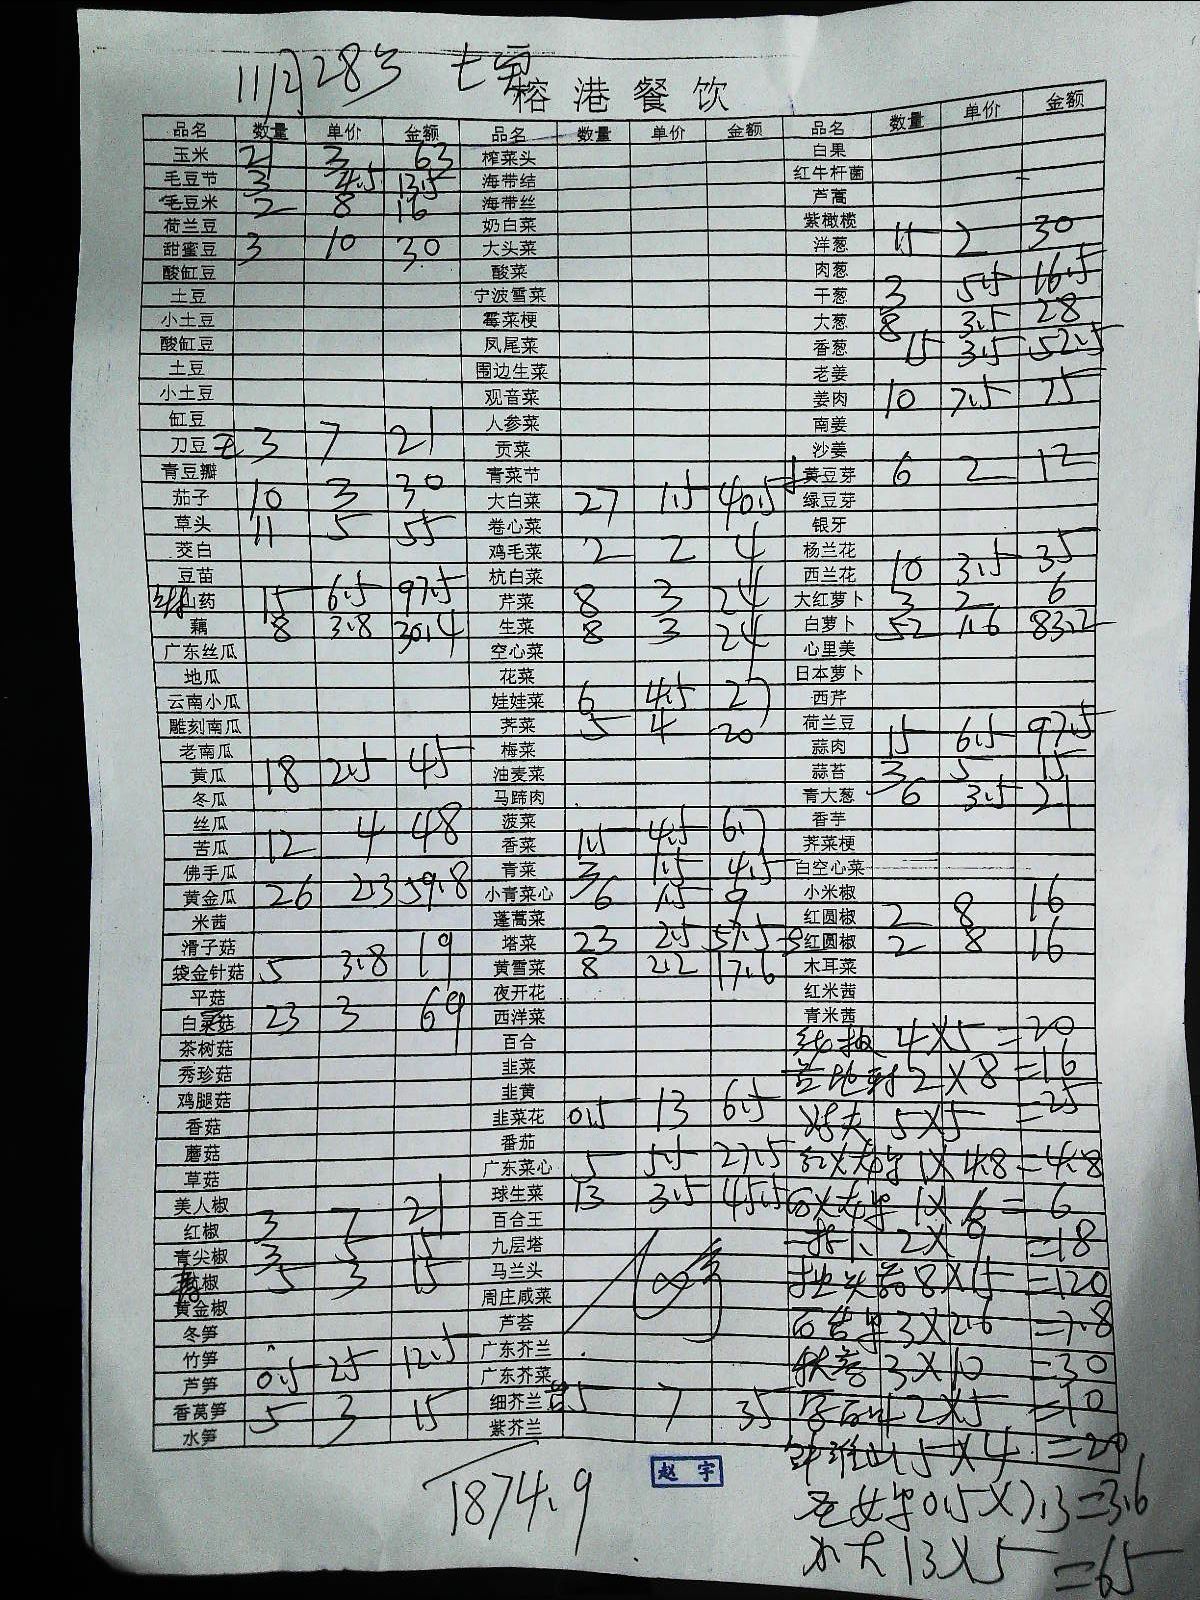 11月28号
榕港餐饮
品名 数量 单价 金额 品名 数量 单价 金额 品名 数量 单价 金额
玉米 21 3 63 榨菜头 白果
毛豆节 3 4.5 13.5 海带结 红牛杆菌
毛豆米 2 8 16 海带丝 芦蒿
荷兰豆 奶白菜 紫橄榄
甜蜜豆 3 10 30 大头菜 洋葱 15 2 30
酸缸豆 酸菜 肉葱
土豆 宁波雪菜 干葱 3 5.5 16.5
小土豆 霉菜梗 大葱 8 3.5 28
酸缸豆 凤尾菜 香葱 15 3.5 52.5
土豆 围边生菜 老姜
小土豆 观音菜 姜肉 10 7.5 75
缸豆 人参菜 南姜
刀豆 3 7 21 贡菜 沙姜
青豆瓣 青菜节 黄豆芽 6 2 12
茄子 10 3 30 大白菜 27 1.5 40.5 绿豆芽
草头 11 5 55 卷心菜 银牙
茭白 鸡毛菜 2 2 4 杨兰花
豆苗 杭白菜 西兰花 10 3.5 35
山药 15 6.5 97.5 芹菜 8 3 24 大红萝卜 3 2 6
藕 8 3.8 30.4 生菜 8 3 24 白萝卜 52 1.6 83.2
广东丝瓜 空心菜 心里美
地瓜 花菜 日本萝卜
云南小瓜 娃娃菜 6 4.5 27 西芹
雕刻南瓜 荠菜 5 4 20 荷兰豆
老南瓜 梅菜 蒜肉 15 6.5 97.5
黄瓜 18 2.5 45 油麦菜 蒜苔 3 5 15
冬瓜 马蹄肉 青大葱 6 3.5 21
丝瓜 菠菜 香芋
苦瓜 12 4 48 香菜 1.5 4.5 6.7 荠菜梗
佛手瓜 青菜 3 1.5 4.5 白空心菜
黄金瓜 26 2.3 59.8 小青菜心 6 1.5 9 小米椒
米茜 蓬蒿菜 红圆椒 2 8 16
滑子菇 塔菜 23 2.5 57.5 红圆椒 2 8 16
袋金针菇 5 3.8 19 黄雪菜 8 2.2 17.6 木耳菜
平菇 夜开花 红米茜
白菇 23 3 69 西洋菜 青米茜
茶树菇 百合 4×5=20
秀珍菇 韭菜 2×8=16
鸡腿菇 韭黄 5×5=25
香菇 韭菜花 0.5 13 6.5
蘑菇 番茄 1×4.8=4.8
草菇 广东菜心 5 5.5 27.5
美人椒 球生菜 13 3.5 45.5 1×6=6
红椒 3 7 21 百合王 2×9=18
青尖椒 3 5 15 九层塔 8×15=120
椒 5 3 15 马兰头
黄金椒 周庄咸菜 3×2.6=7.8
冬笋 芦荟
竹笋 广东芥兰 3×10=30
芦笋 0.5 25 12.5 广东芥菜
香莴笋 5 3 15 细芥兰 5 7 35 2×5=10
水笋 紫芥兰 5×4=20
1874.9
赵宇
0.5×7.3=3.6
13×5=65